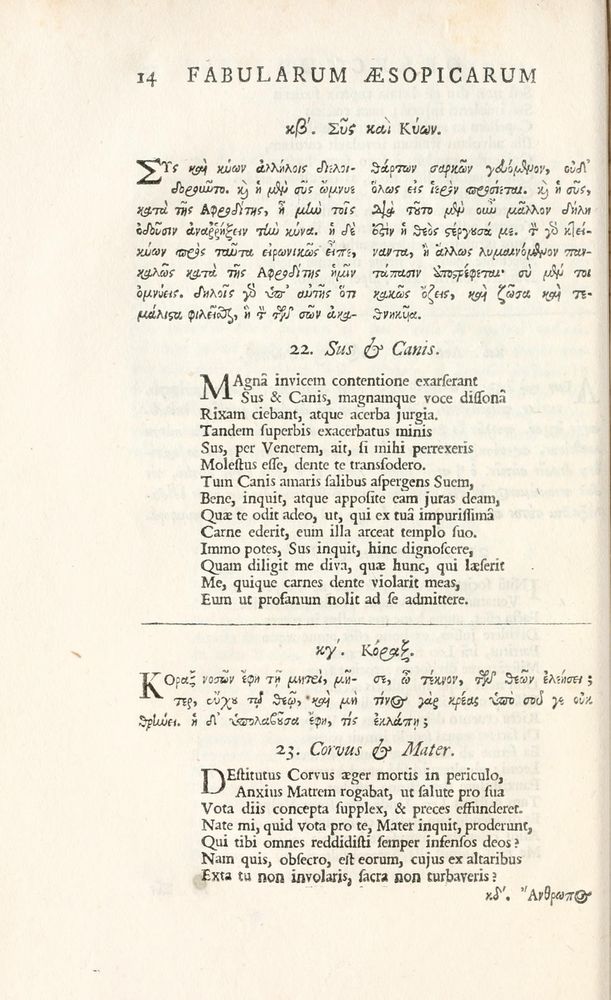 14 FABULARUM ÆSOPICARUM
κβʹ. Σῦς καὶ Κύων.
ΣΥς καὶ κύων ἀλλήλοις διελοι-
δορῦντο. καὶ ἡ μὲν σῦς ὤμνυε
κατὰ τῆς Ἀφροδίτης, ἦ μὴν τοῖς
ὀδοῦσιν ἀναῤῥήξειν τὴν κύνα. ἡ δὲ
κύων πρὸς ταῦτα εἰρωνικῶς εἶπε,
καλῶς κατὰ τῆς Ἀφροδίτης ἡμῖν
ὀμνύεις. δηλοῖς γὰρ ὑπ' αὐτῆς ὅτι
μάλιστα φιλεῖσθαι, ἣ τὸν τῶν σῶν ἀκα-
θάρτων σαρκῶν γευόμενον, οὐδ'
ὅλως εἰς ἱερὸν προσίεται. καὶ ἡ σῦς,
διὰ τοῦτο μὲν οὖν μᾶλλον δήλη
ἐστὶν ἡ θεὸς στέργουσά με. τὸν γὰρ κτεί-
ναντα, ἢ ἄλλως λυμαινόμενον παν-
τάπασιν ἀποστρέφεται· σὺ μέν τοι
κακῶς ὄζεις, καὶ ζῶσα καὶ τε-
θνηκυῖα.
22. Sus & Canis.
MAgnâ invicem contentione exarserant
Sus & Canis, magnamque voce dissonâ
Rixam ciebant, atque acerba jurgia.
Tandem superbis exacerbatus minis
Sus, per Venerem, ait, si mihi perrexeris
Molestus esse, dente te transfodero.
Tum Canis amaris salibus aspergens Suem,
Bene, inquit, atque apposite eam juras deam,
Quæ te odit adeo, ut, qui ex tuâ impurissimâ
Carne ederit, eum illa arceat templo suo.
Immo potes, Sus inquit, hinc dignoscere,
Quam diligit me diva, quæ hunc, qui læserit
Me, quique carnes dente violarit meas,
Eum ut profanum nolit ad se admittere.
κγʹ. Κόραξ.
ΚΟραξ νοσῶν ἔφη τῇ μητρὶ, μῆ-
τερ, εὔχου τῷ θεῷ, καὶ μὴ
θρήνει. ἡ δ' ὑπολαβοῦσα ἔφη, τίς
σε, ὦ τέκνον, τῶν θεῶν ἐλεήσει;
τίνος γὰρ κρέας ὑπὸ σοῦ γε οὐκ
ἐκλάπη;
23. Corvus & Mater.
DEstitutus Corvus æger mortis in periculo,
Anxius Matrem rogabat, ut salute pro sua
Vota diis concepta supplex, & preces effunderet.
Nate mi, quid vota pro te, Mater inquit, proderunt,
Qui tibi omnes reddidisti semper infensos deos?
Nam quis, obsecro, est eorum, cujus ex altaribus
Exta tu non involaris, sacra non turbaveris?
κδʹ. Ἄνθρωπος